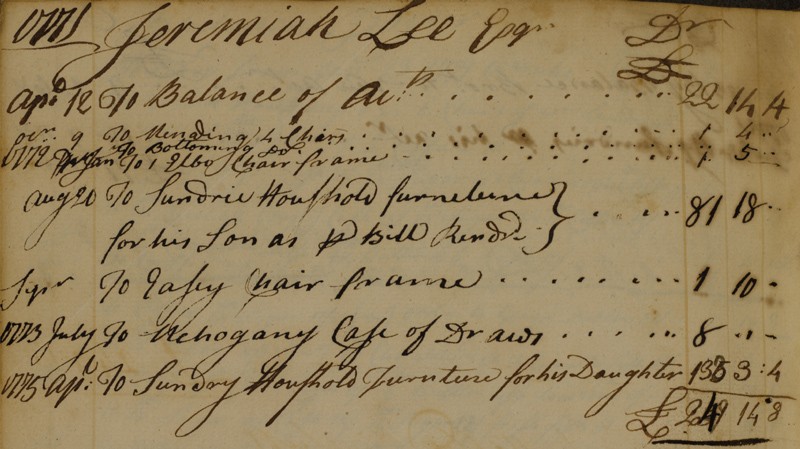 1771 Jeremiah Lee Esqr Dr
£
apl 12 To Balance of Acts . . . . . . . . . . 22 14 4
9 To Mending 4 Chairs . . . . . . . . 1 4 "
To Bottoming Do
1772 Jan To 1 Elbo Chair frame . . . . . . . . 1 5 "
aug 20 To Sundrie Houshold furneture
for his Son as pr Bill Rendrd } . . . . 81 18 -
Sepr To Easey Chair frame . . . . . . 1 10 -
1773 July To Mehogany Case of Draws . . . . . 8 " -
1775 apl: To Sundry Houshold Furniture for his Daughter 133 3:4
£ 249 14 8